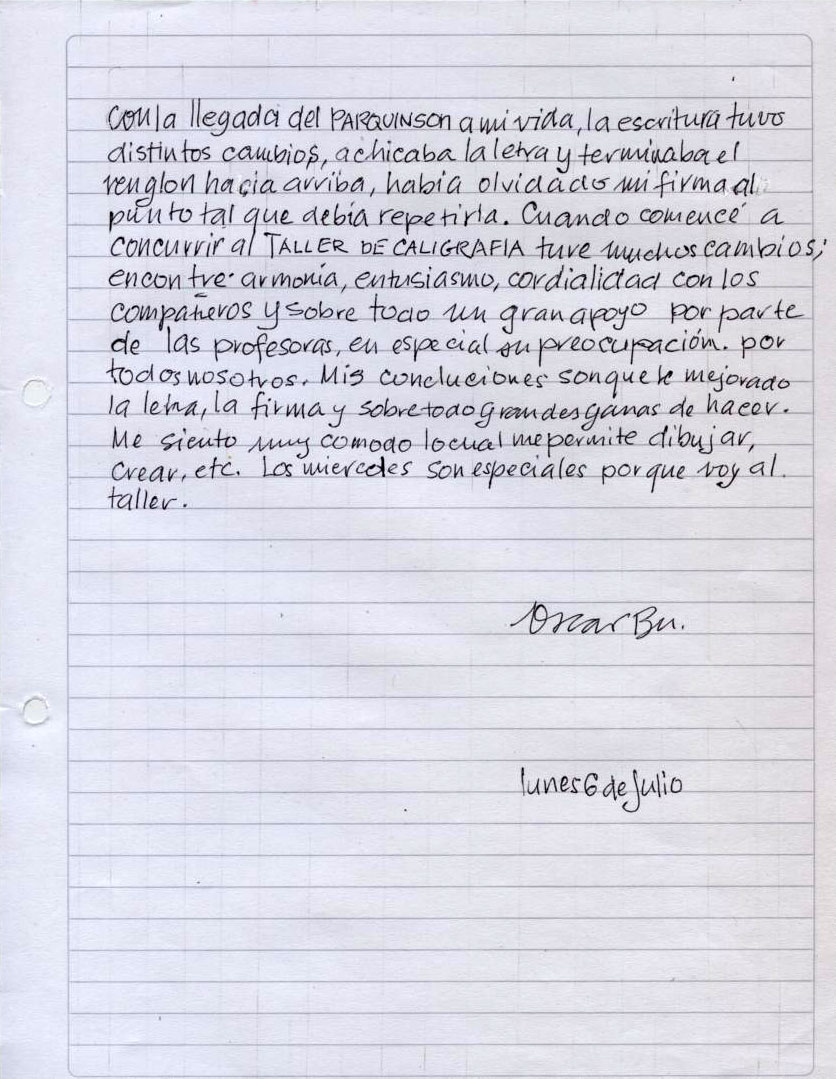 Con la llegada del PARQUINSON a mi vida, la escritura tuvo
distintos cambios, achicaba la letra y terminaba el
renglon hacia arriba, había olvidado mi firma al
punto tal que debía repetirla. Cuando comencé a
concurrir al TALLER DE CALIGRAFIA tuve muchos cambios;
encontre armonía, entusiasmo, cordialidad con los
compañeros y sobre todo un gran apoyo por parte
de las profesoras, en especial su preocupación. por
todos nosotros. Mis concluciones son que he mejorado
la letra, la firma y sobre todo grandes ganas de hacer.
Me siento muy comodo lo cual me permite dibujar,
crear, etc. Los miercoles son especiales porque voy al.
taller.
Oscar Bu.
lunes 6 de Julio